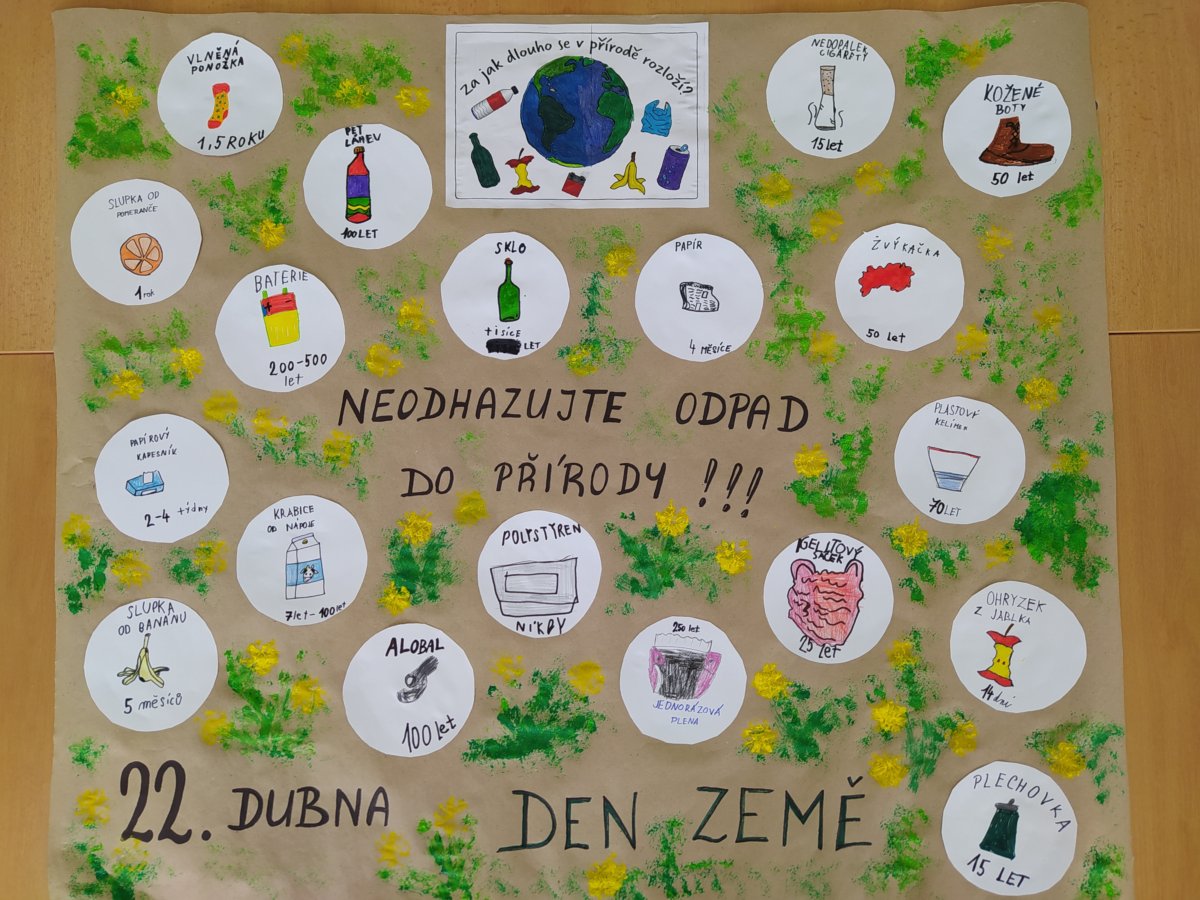 Za jak dlouho se v přírodě rozloží?
VLNĚNÁ
PONOŽKA
1,5 ROKU
PET
LÁHEV
100 LET
NEDOPALEK
CIGARETY
15 let
KOŽENÉ
BOTY
50 let
SLUPKA OD
POMERANČE
1 rok
BATERIE
200-500
let
SKLO
tisíce
LET
PAPÍR
4 MĚSÍCE
ŽVÝKAČKA
50 let
NEODHAZUJTE ODPAD
DO PŘÍRODY !!!
PAPÍROVÝ
KAPESNÍK
2-4 týdny
KRABICE
OD NÁPOJE
7let-100let
POLYSTYREN
NIKDY
PLASTOVÝ
KELÍMEK
70 LET
IGELITOVÝ
SÁČEK
25 let
SLUPKA
OD BANÁNU
5 měsíců
ALOBAL
100 let
250 let
JEDNORÁZOVÁ
PLENA
OHRYZEK
Z JABLKA
14 dní
PLECHOVKA
15 LET
22. DUBNA DEN ZEMĚ